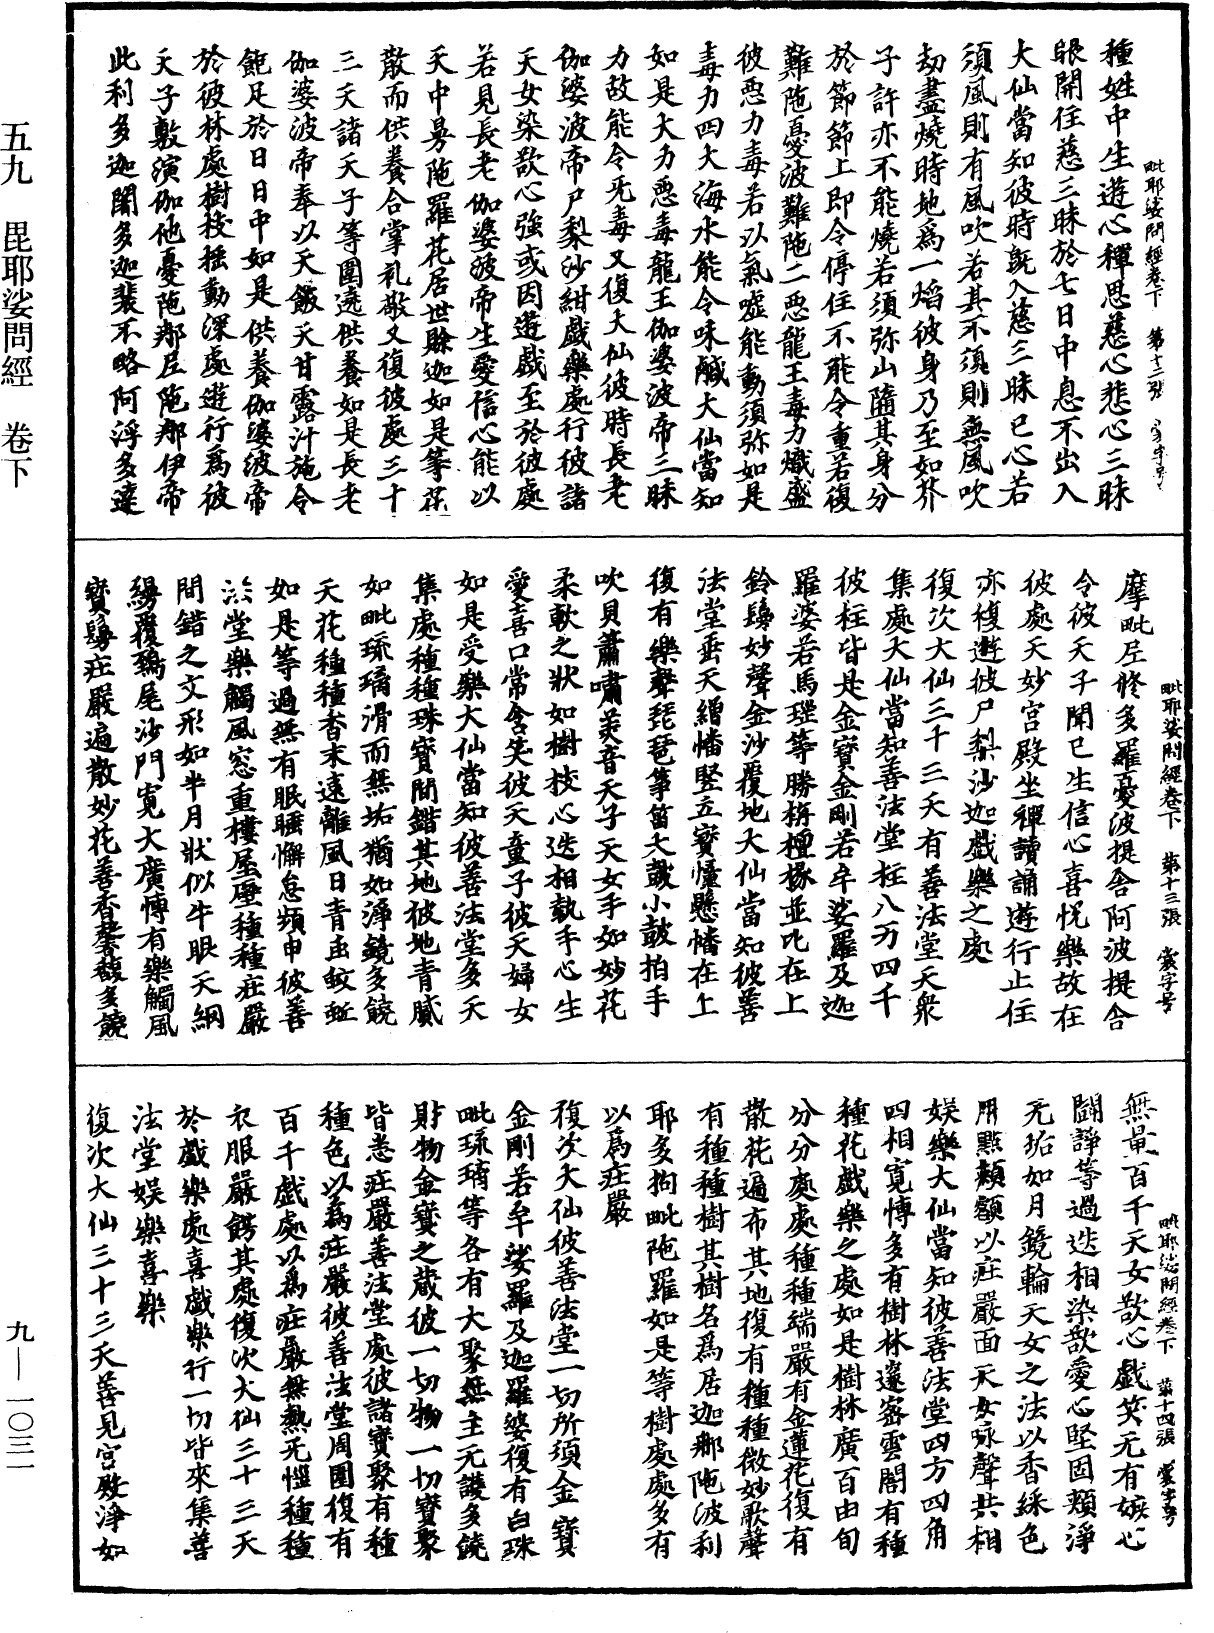 五九 毘耶娑問經 卷下
九—一〇三二
毗耶娑問經卷下 第十二張
種姓中生遊心禪思慈心悲心三昧
眼開住慈三昧於七日中息不出入
大仙當知彼時旣入慈三昧已心若
須風則有風吹若其不須則無風吹
劫盡燒時地爲一焰彼身乃至如芥
子許亦不能燒若須弥山隨其身分
於節節上即令停住不能令重若復
難陁憂波難陁二惡龍王毒力熾盛
彼惡力毒若以氣噓能動須弥如是
毒力四大海水能令味鹹大仙當知
如是大力惡毒龍王伽婆波帝三昧
力故能令无毒又復大仙彼時長老
伽婆波帝尸梨沙紺戲樂處行彼諸
天女染欲心強或因遊戲至於彼處
若見長老伽婆波帝生愛信心能以
天中曼陁羅花居世賒迦如是等花
散而供養合掌礼敬又復彼處三十
三天諸天子等圍遶供養如是長老
伽婆波帝奉以天飯天甘露汁施令
飽足於日日中如是供養伽婆波帝
於彼林處樹枝揺動深處遊行爲彼
天子敷演伽他憂陁那尼陁那伊帝
此利多迦闍多迦裴不略阿浮多達
毗耶娑問經卷下 第十三張 賓字号
摩毗尼修多羅憂波提舍阿波提舍
令彼天子聞已生信心喜恱樂故在
彼處天妙宮殿坐禪讀誦遊行止住
亦複遊彼尸梨沙迦戲樂之處
復次大仙三十三天有善法堂天衆
集處大仙當知善法堂柱八万四千
彼柱皆是金寶金剛若牟娑羅及迦
羅婆若馬瑙等勝栴檀椽並叱在上
鈴鬘妙聲金沙覆地大仙當知彼善
法堂垂天繒幡竪立寶幢懸幡在上
復有樂聲琵琶箏笛大皷小皷拍手
吹貝簫嘯美音天子天女手如妙花
柔軟之狀如樹枝心迭相執手心生
愛喜口常含笑彼天童子彼天婦女
如是受樂大仙當知彼善法堂多天
集處種種珠寶間錯其地彼地青膩
如毗琉璃滑而無垢猶如淨鏡多饒
天花種種香末遠離風日青蝱蚊
如是等過無有眠睡懈怠頻申彼善
法堂樂觸風窓重樓屋壁種種莊嚴
間錯之文形如半月狀似牛眼天網
縵覆鵄尾沙門寬大廣愽有樂觸風
寶鬘莊嚴遍散妙花善香馨馥多饒
毗耶娑問經卷下 第十四張 賓字号
無量百千天女欲心戲笑无有嫉心
鬪諍等過迭相染欲愛心堅固頰淨
无垢如月鏡輪天女之法以香綵色
用點頰額以莊嚴面天女咏聲共相
娛樂大仙當知彼善法堂四方四角
四相寬愽多有樹林邃密雲閣有種
種花戲樂之處如是樹林廣百由旬
分分處處種種端嚴有金蓮花復有
散花遍布其地復有種種微妙歌聲
有種種樹其樹名爲居迦那陁波利
耶多拘毗陁羅如是等樹處處多有
以爲莊嚴
復次大仙彼善法堂一切所須金寶
金剛若牟娑羅及迦羅婆復有白珠
毗琉璃等各有大聚無主无護多饒
財物金寶之藏彼一切物一切寶聚
皆悉莊嚴善法堂處彼諸寶聚有種
種色以爲莊嚴彼善法堂周圍復有
百千戲處以爲莊嚴無熱无惱種種
衣服嚴餝其處復次大仙三十三天
於戲樂處喜戲樂行一切皆來集善
法堂娛樂喜樂
復次大仙三十三天善見宮殿淨如